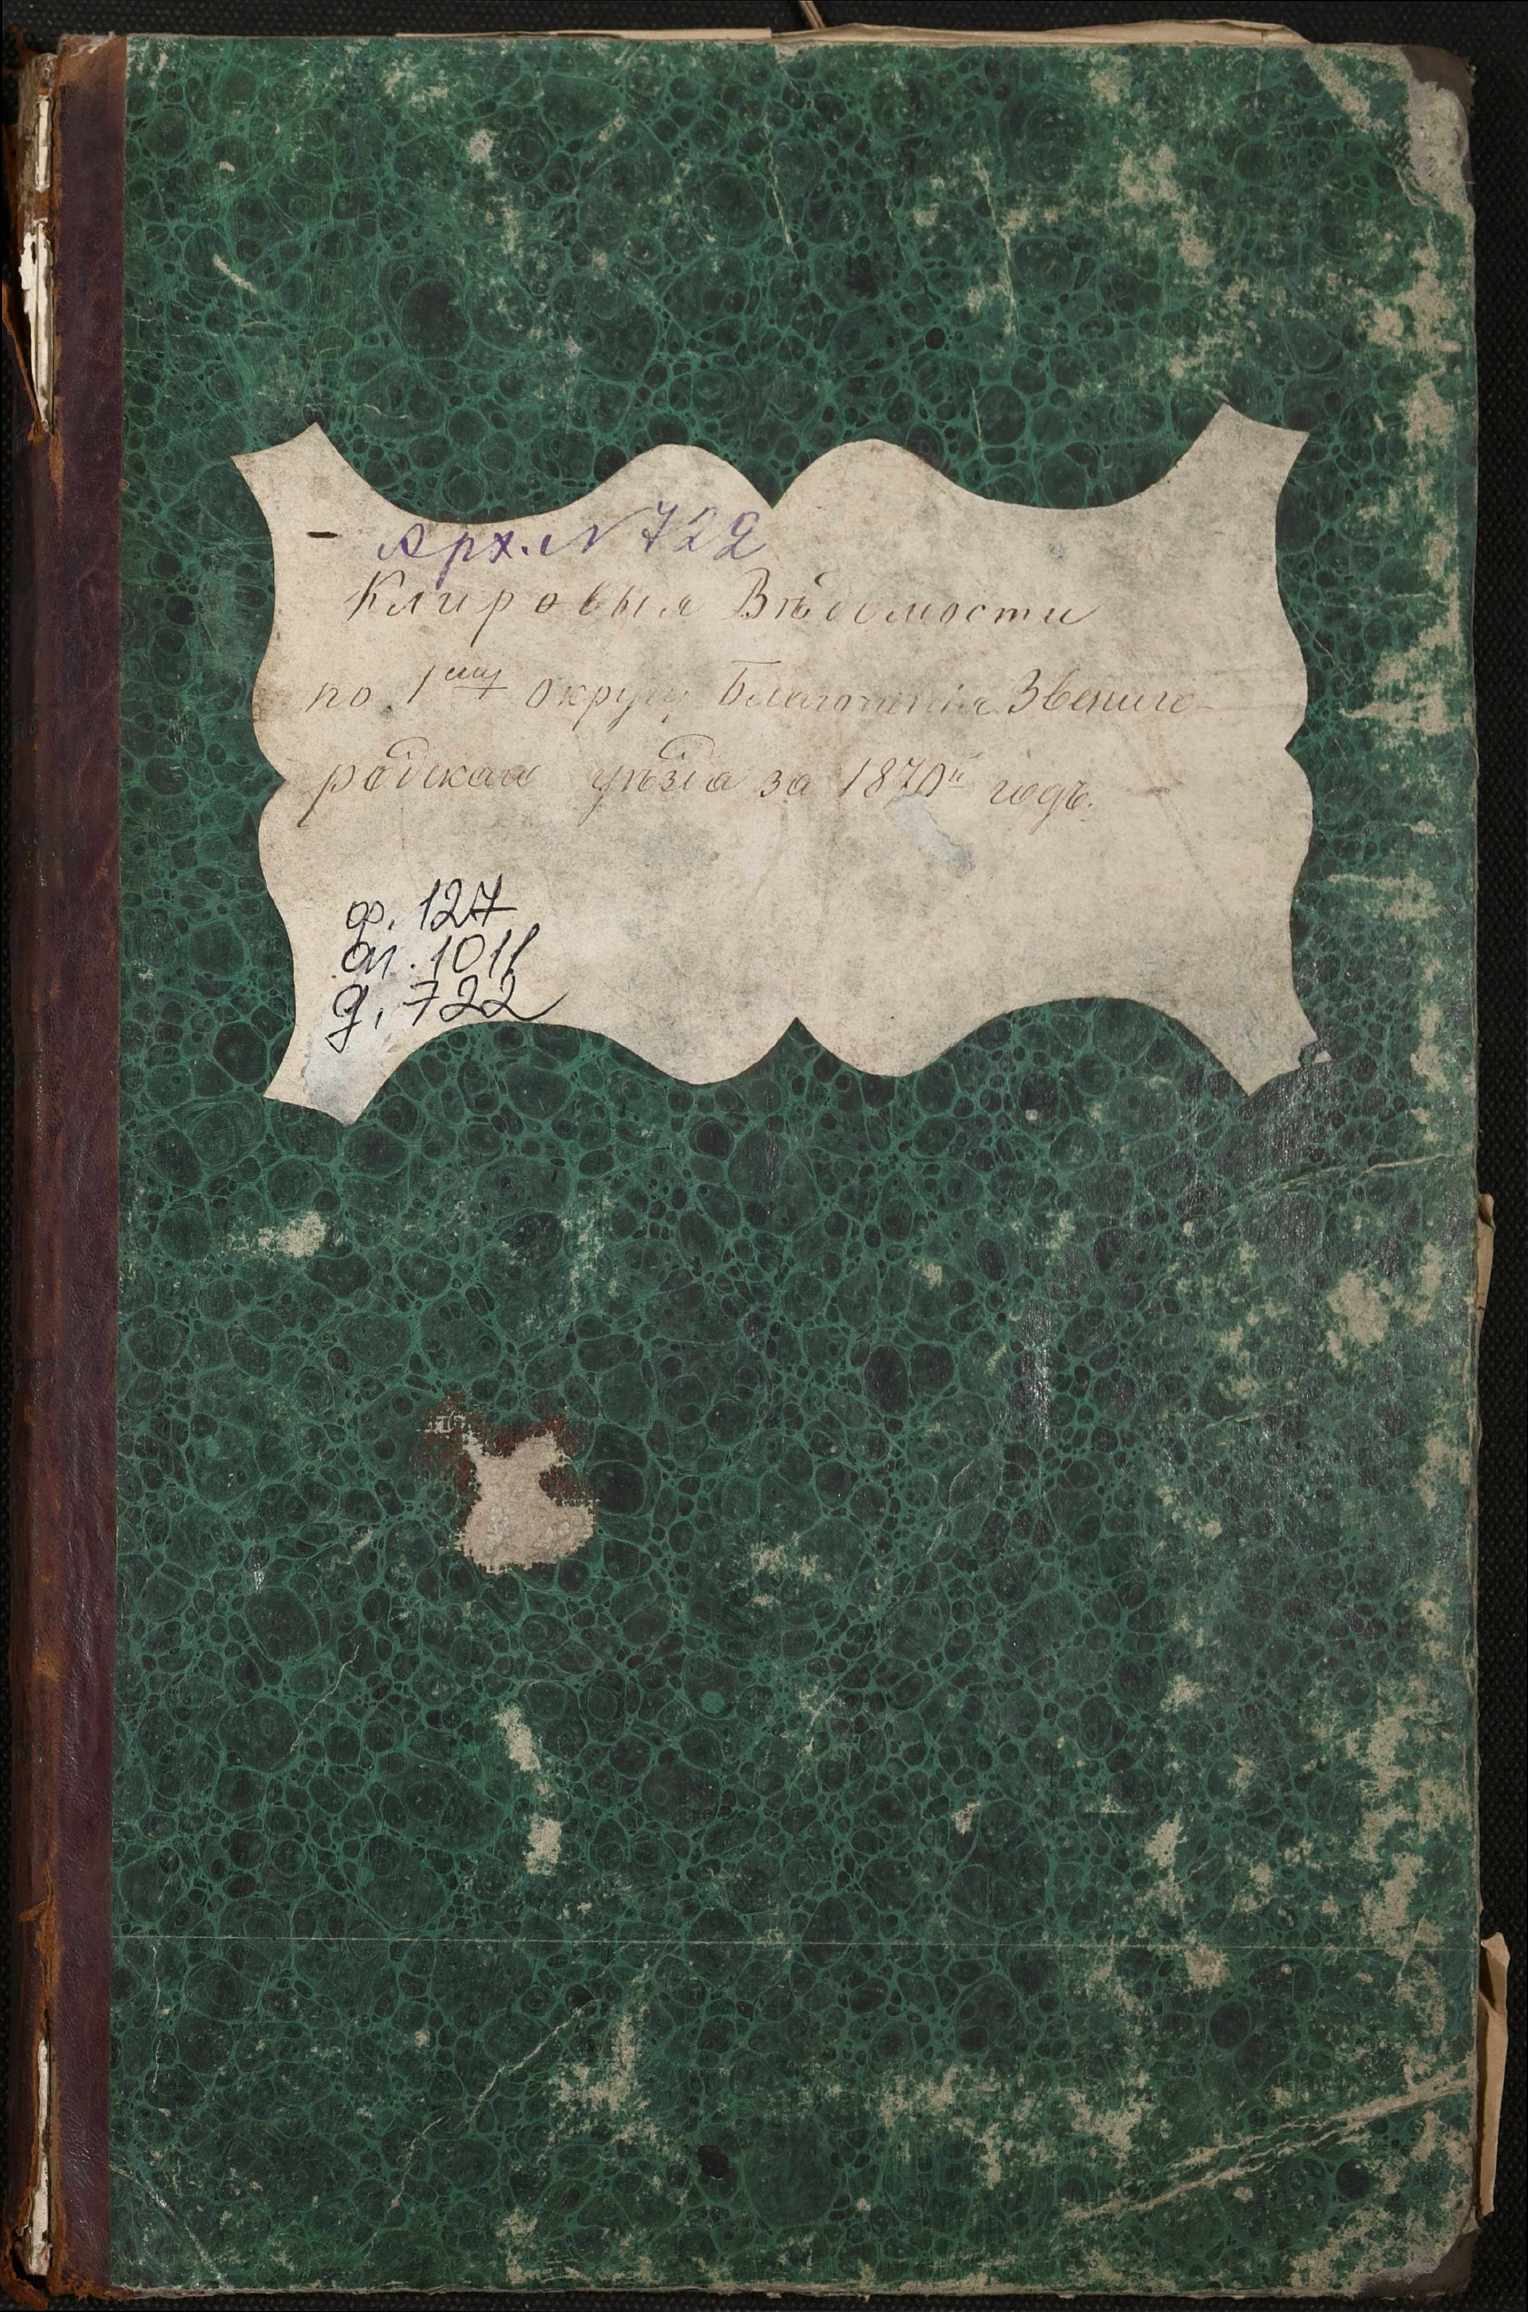 Арх. N 722
Клировыя Вѣдомости
по 1му округу Благочинія Звениго-
родскаго уѣзда за 1870й годъ.
ф. 127
оп. 1011
д. 722